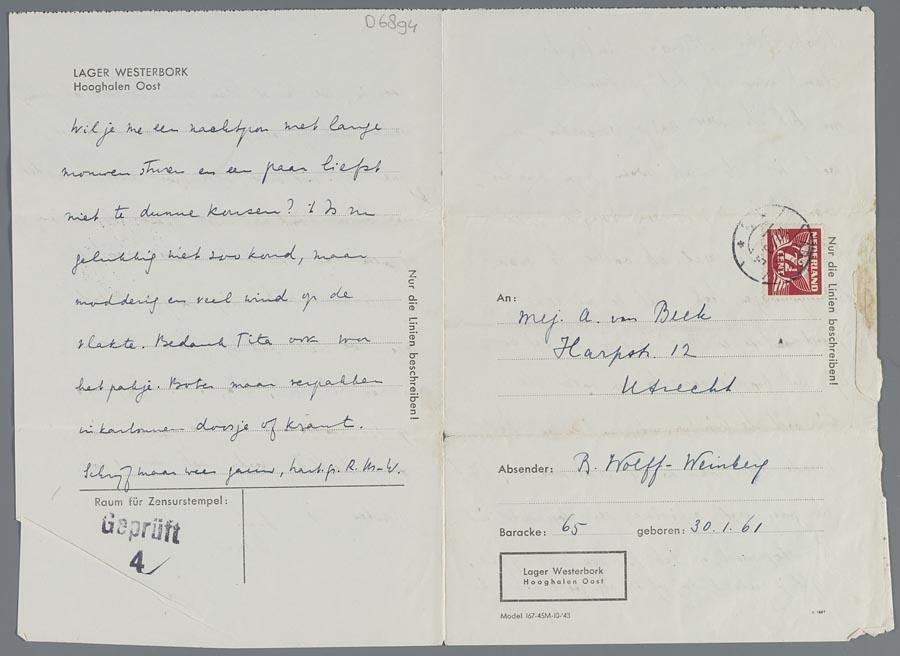 D6894
LAGER WESTERBORK
Hooghalen Oost
Wil je me een nachtpon met lange
mouwen sturen en een paar liefst
niet te dunne kousen? 't Is nu
gelukkig niet zoo koud, maar
modderig en veel wind op de
vlakte. Bedank Tita ook voor
het pakje. Boter maar verpakken
in kartonnen doosje of krant.
Schrijf maar weer gauw, hart. gr. R. W-W.
Nur die Linien beschreiben!
Raum für Zensurstempel:
Geprüft
4
NEDERLAND
7½
CENT
Nur die Linien beschreiben!
An:
Mej. A. van Beek
Harpstr. 12
Utrecht
Absender: R. Wolff-Weinberg
Baracke: 65 geboren: 30.1.61
Lager Westerbork
Hooghalen Oost
Model 167-45M-10-'43